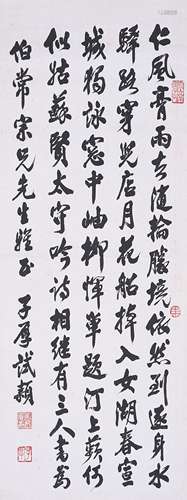 仁風膏雨去隨輪勝境依然到逐身水
驛路穿兒店月花船棹入女湖春宣
城獨詠窓中岫柳惲單題汀上蘋何
似姑蘇賢太守吟詩相繼有三人書爲
伯常兄先生正 子厚試穎